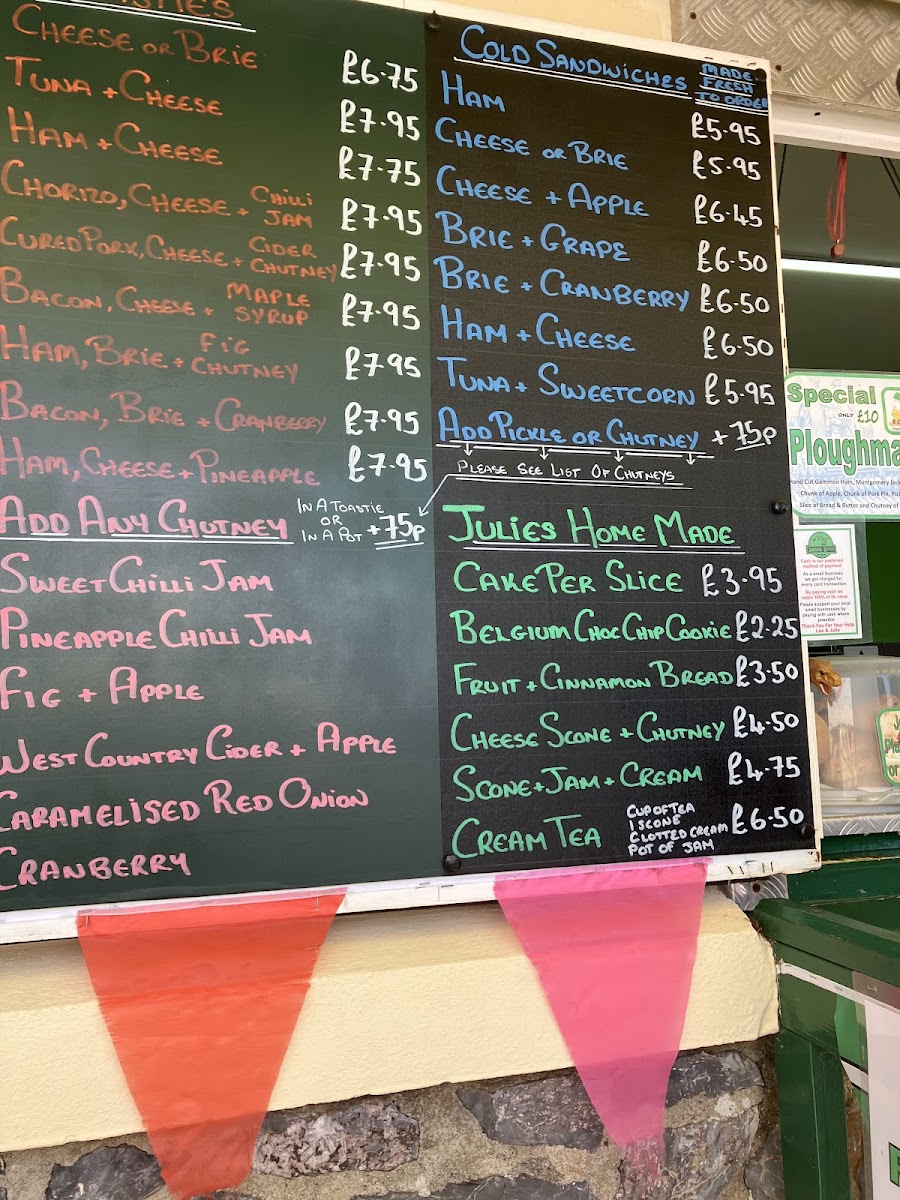 CHEESE OR BRIE £6.75
TUNA + CHEESE £7.95
HAM + CHEESE £7.75
CHORIZO, CHEESE + CHILLI JAM £7.95
CURED PORK, CHEESE + CIDER CHUTNEY £7.95
BACON, CHEESE + MAPLE SYRUP £7.95
HAM, BRIE + FIG CHUTNEY £7.95
BACON, BRIE + CRANBERRY £7.95
HAM, CHEESE + PINEAPPLE £7.95
ADD ANY CHUTNEY IN A TOASTIE OR IN A POT +75p
SWEET CHILLI JAM
PINEAPPLE CHILLI JAM
FIG + APPLE
WEST COUNTRY CIDER + APPLE
CARAMELISED RED ONION
CRANBERRY
COLD SANDWICHES MADE FRESH TO ORDER
HAM £5.95
CHEESE OR BRIE £5.95
CHEESE + APPLE £6.45
BRIE + GRAPE £6.50
BRIE + CRANBERRY £6.50
HAM + CHEESE £6.50
TUNA + SWEETCORN £5.95
ADD PICKLE OR CHUTNEY +75p
PLEASE SEE LIST OF CHUTNEYS
JULIES HOME MADE
CAKE PER SLICE £3.95
BELGIUM CHOC CHIP COOKIE £2.25
FRUIT + CINNAMON BREAD £3.50
CHEESE SCONE + CHUTNEY £4.50
SCONE + JAM + CREAM £4.75
CREAM TEA CUP OF TEA 1 SCONE CLOTTED CREAM POT OF JAM £6.50
Special
ONLY £10
Ploughma
and Cut Gammon Ham, Montgomery Jack
Chunk of Apple, Chunk of Pork Pie, Pic
Slice of Bread & Butter and Chutney of
Cash is our preferred
method of payment
As a small business
we get charged for
every card transaction
By paying cash we
retain 100% of its value
Please support your local
small businesses by
paying with cash where
possible
Thank You For Your Help
Lee & Julie